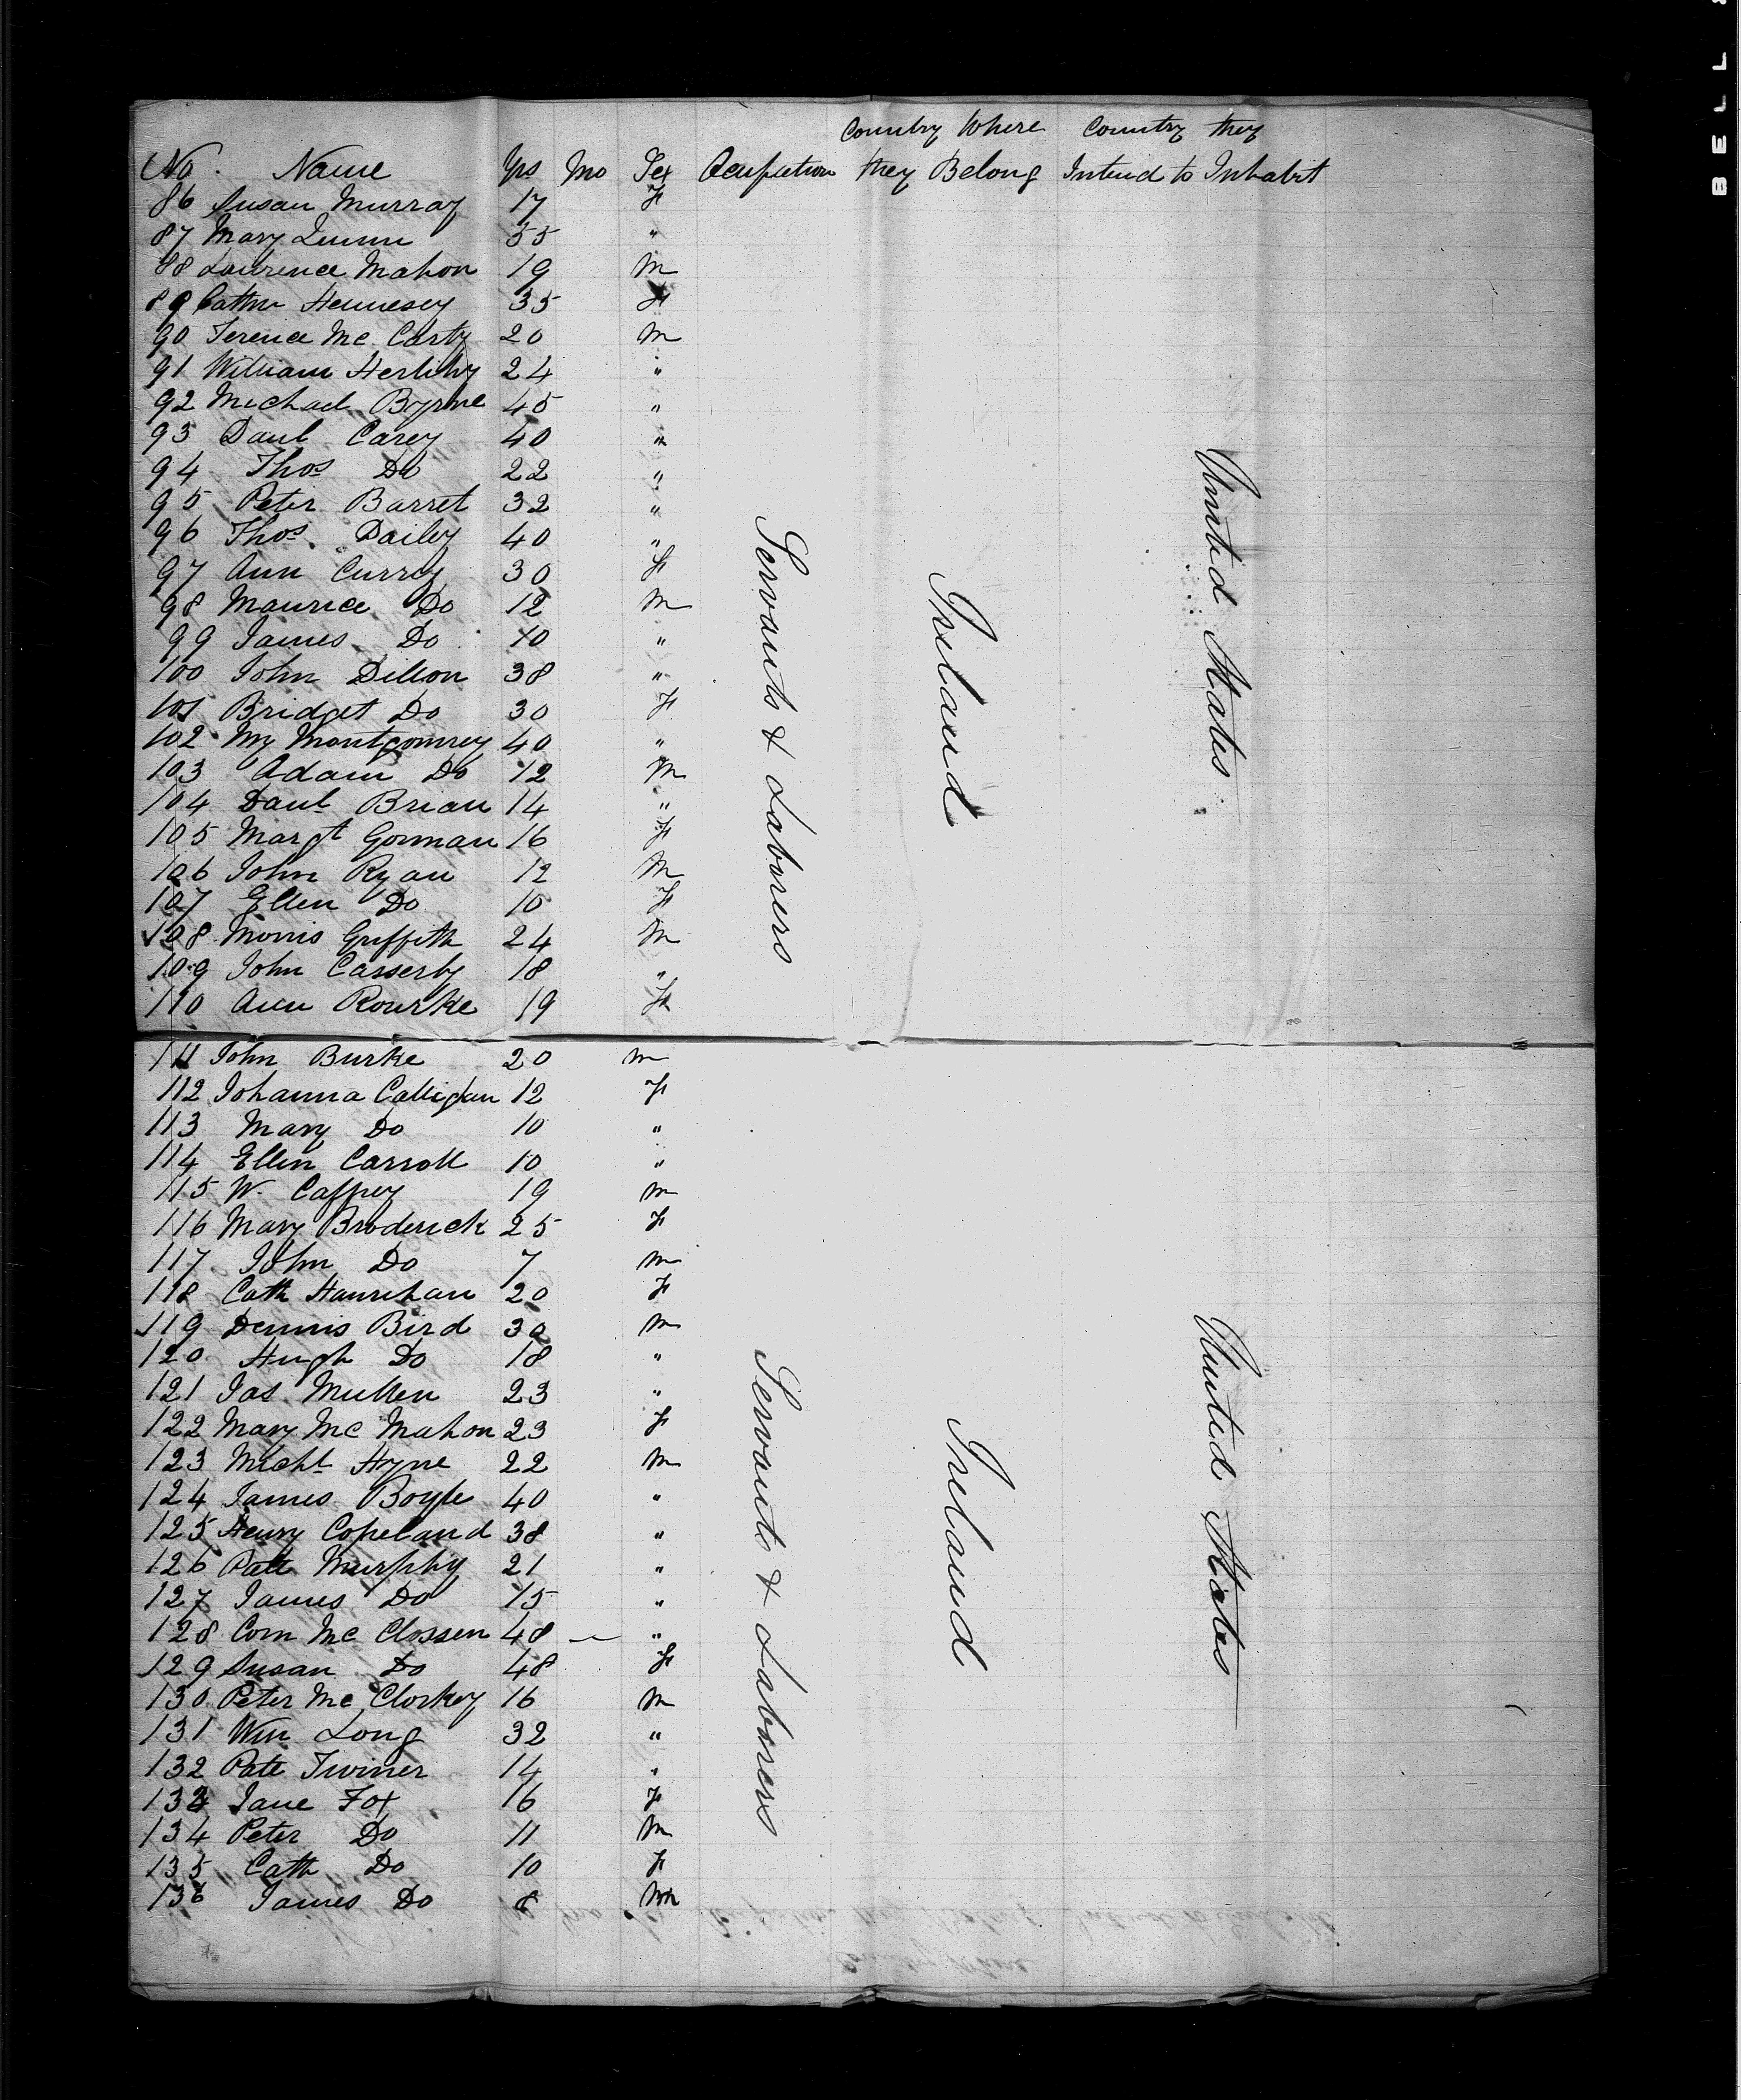 Country Where Country they
No. Name Yrs Mo Sex Ocupation they Belong Intend to Inhabit
86 Susan Murray 17 F
87 Mary Quinn 35 "
88 Laurence Mahon 19 M
89 Cathn Hennesey 35 F
90 Terence Mc Carty 20 M
91 William Herlihy 24 "
92 Michael Byrne 45 "
93 Danl Carey 40 "
94 Thos Do 22 "
95 Peter Barret 32 "
96 Thos. Dailey 40 "
97 Ann Currey 30 F
98 Maurice Do 12 M
99 James Do 10 "
100 John Dillon 38 "
101 Bridget Do 30 F
102 My Montgomrey 40 "
103 Adam Do 12 M
104 Danl Brian 14 "
105 Margt Gorman 16 F
106 John Ryan 12 M
107 Ellen Do 10 F
108 Morris Griffith 24 M
109 John Casserly 18 "
110 Ann Rourke 19 F
Servants & Laborers
Ireland
United States
111 John Burke 20 M
112 Johanna Calligan 12 F
113 Mary Do 10 "
114 Ellen Carroll 10 "
115 W. Caffrey 19 M
116 Mary Broderick 25 F
117 John Do 7 M
118 Cath Hanrahan 20 F
119 Dennis Bird 30 M
120 Hugh Do 18 "
121 Jas. Mullen 23 "
122 Mary Mc Mahon 23 F
123 Michl Hyne 22 M
124 James Boyle 40 "
125 Henry Copeland 38 "
126 Patt Murphy 21 "
127 James Do 15 "
128 Corn Mc Clossen 48 — "
129 Susan Do 48 F
130 Peter Mc Clorkey 16 M
131 Wm Long 32 "
132 Patt Twiner 14 "
133 Jane Fox 16 F
134 Peter Do 11 M
135 Cath Do 10 F
136 James Do 8 M
Servants & Laborers
Ireland
United States
BELL &